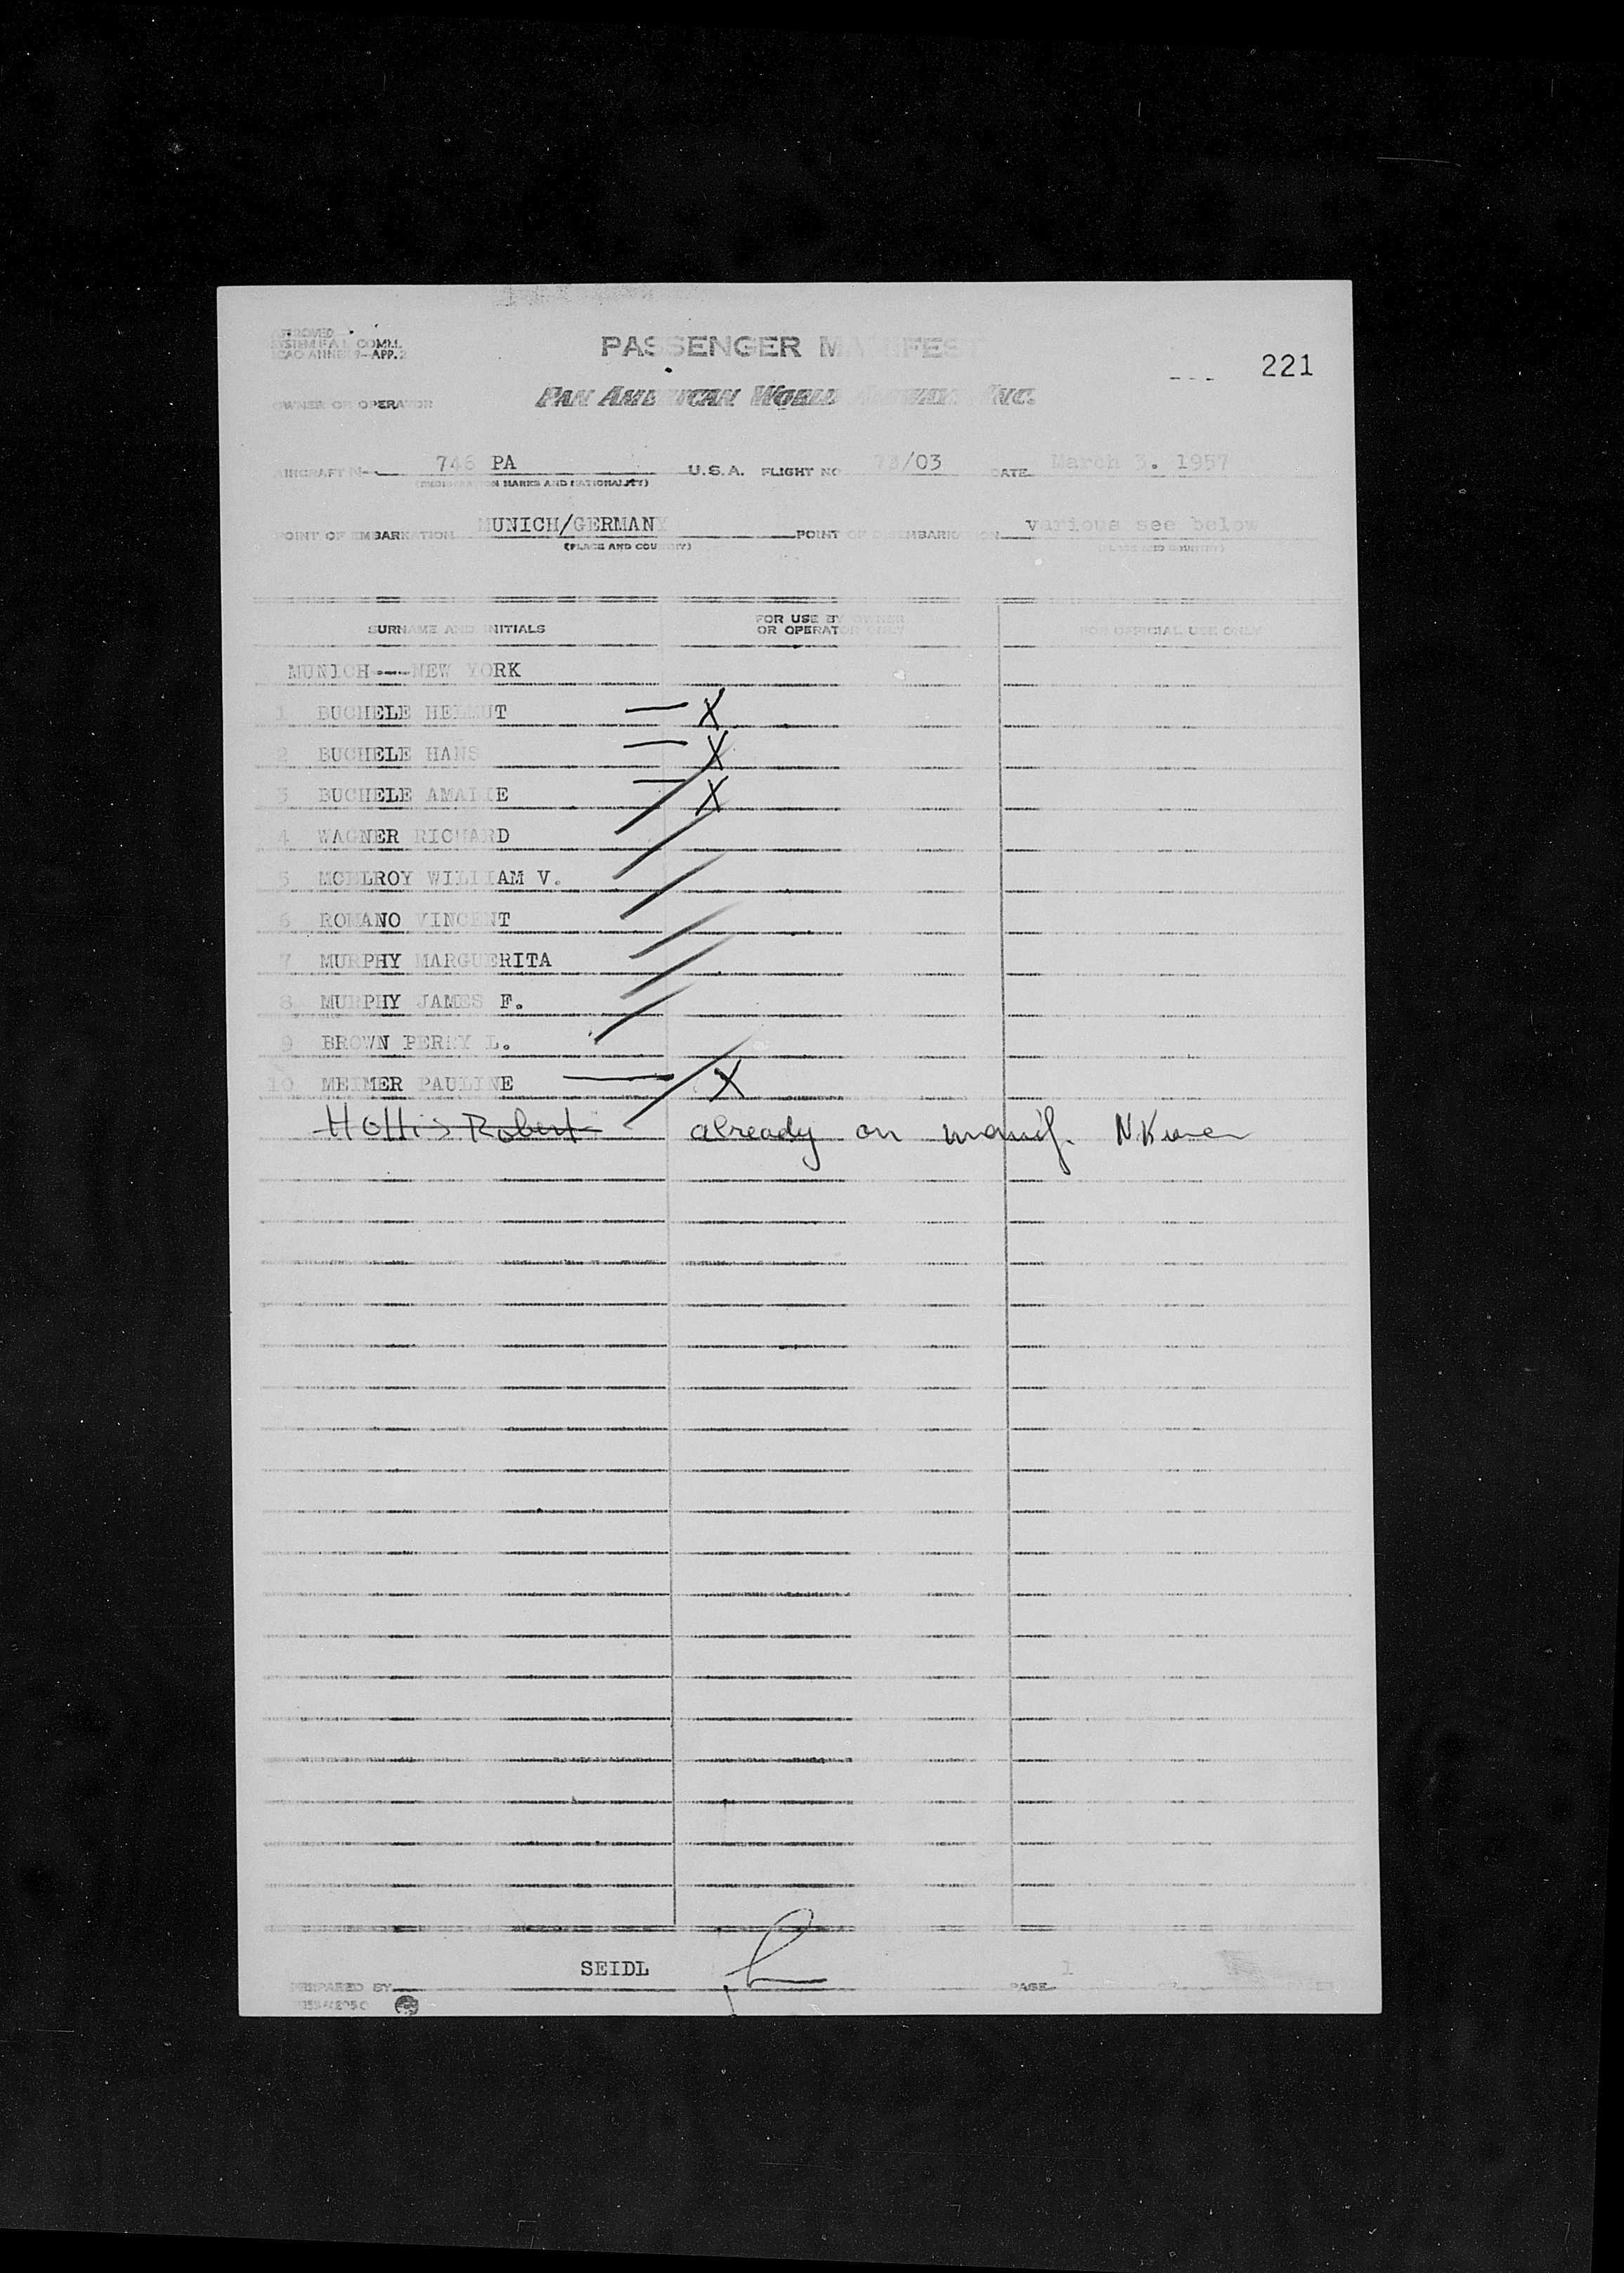 APPROVED
SYSTEM F.A.L. COMM.
ICAO ANNEX 9-APP. 2
PASSENGER MANIFEST
221
OWNER OR OPERATOR
PAN AMERICAN WORLD AIRWAYS INC.
AIRCRAFT N- 746 PA U.S.A. FLIGHT NO 73/03 DATE March 3. 1957
(REGISTRATION MARKS AND NATIONALITY)
POINT OF EMBARKATION MUNICH/GERMANY POINT OF DISEMBARKATION various see below
(PLACE AND COUNTRY) (PLACE AND COUNTRY)
SURNAME AND INITIALS FOR USE BY OWNER OR OPERATOR ONLY FOR OFFICIAL USE ONLY
MUNICH---NEW YORK
1 BUCHELE HELMUT — X
2 BUCHELE HANS — X
3 BUCHELE AMALIE — X
4 WAGNER RICHARD
5 MCELROY WILLIAM V.
6 ROMANO VINCENT
7 MURPHY MARGUERITA
8 MURPHY JAMES F.
9 BROWN PERRY L.
10 MEIMER PAULINE — X
Hollis Robert already on manif.
SEIDL
PREPARED BY PAGE 1 OF